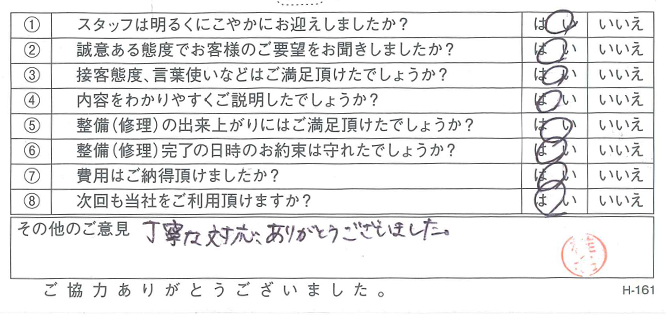 ① スタッフは明るくにこやかにお迎えしましたか？ はい いいえ
② 誠意ある態度でお客様のご要望をお聞きしましたか？ はい いいえ
③ 接客態度、言葉使いなどはご満足頂けたでしょうか？ はい いいえ
④ 内容をわかりやすくご説明したでしょうか？ はい いいえ
⑤ 整備（修理）の出来上がりにはご満足頂けたでしょうか？ はい いいえ
⑥ 整備（修理）完了の日時のお約束は守れたでしょうか？ はい いいえ
⑦ 費用はご納得頂けましたか？ はい いいえ
⑧ 次回も当社をご利用頂けますか？ はい いいえ
その他のご意見 丁寧な対応、ありがとうございました。
ご協力ありがとうございました。 H-161